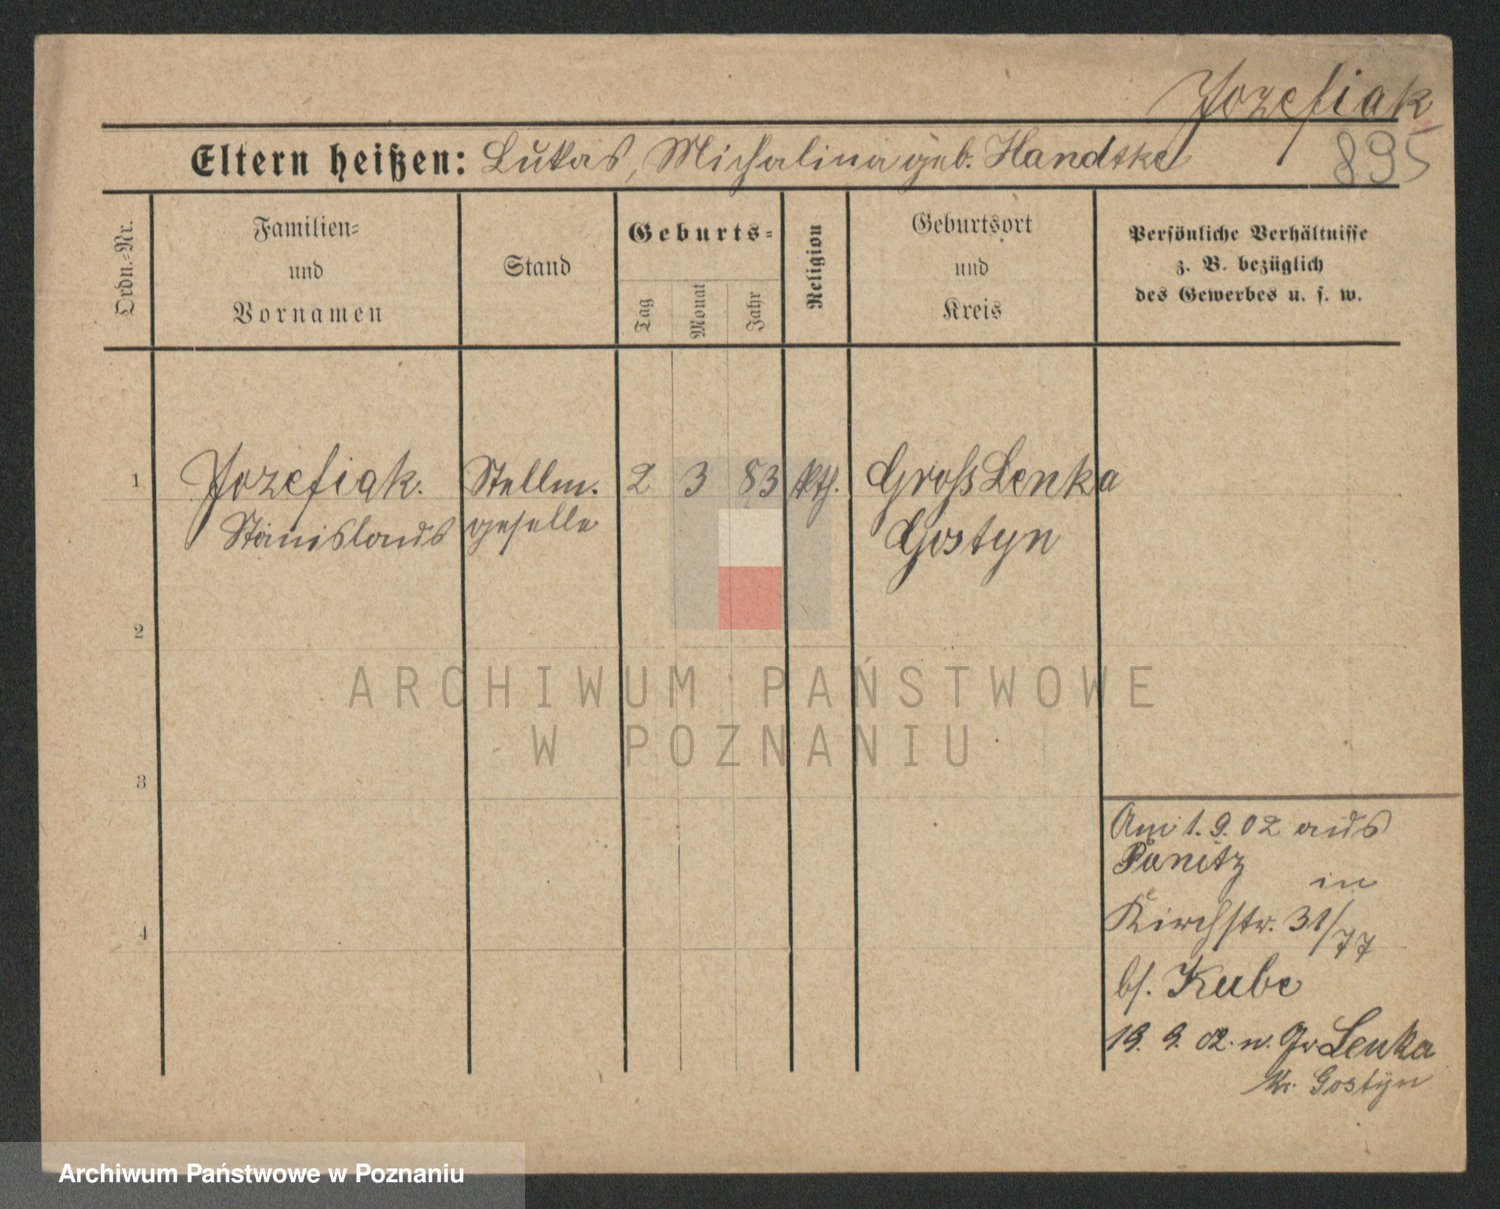 Jozefiak
895
Eltern heißen: Lukas, Michalina geb. Handtke
Ordn.-Nr.
Familien-
und
Vornamen
Stand
Geburts-
Tag
Monat
Jahr
Religion
Geburtsort
und
Kreis
Persönliche Verhältnisse
z. B. bezüglich
des Gewerbes u. s. w.
1 Jozefiak. Stellm. 2 3 83 kth. Gross Lenka
Stanislaus geselle Gostyn
2
ARCHIWUM PAŃSTWOWE
W POZNANIU
3
Am 1. 9. 02 aus
Punitz
in
Kirchstr. 31/77
4
bf. Kube
19. 9. 02. n. Gr Lenka
Kr. Gostyn
Archiwum Państwowe w Poznaniu